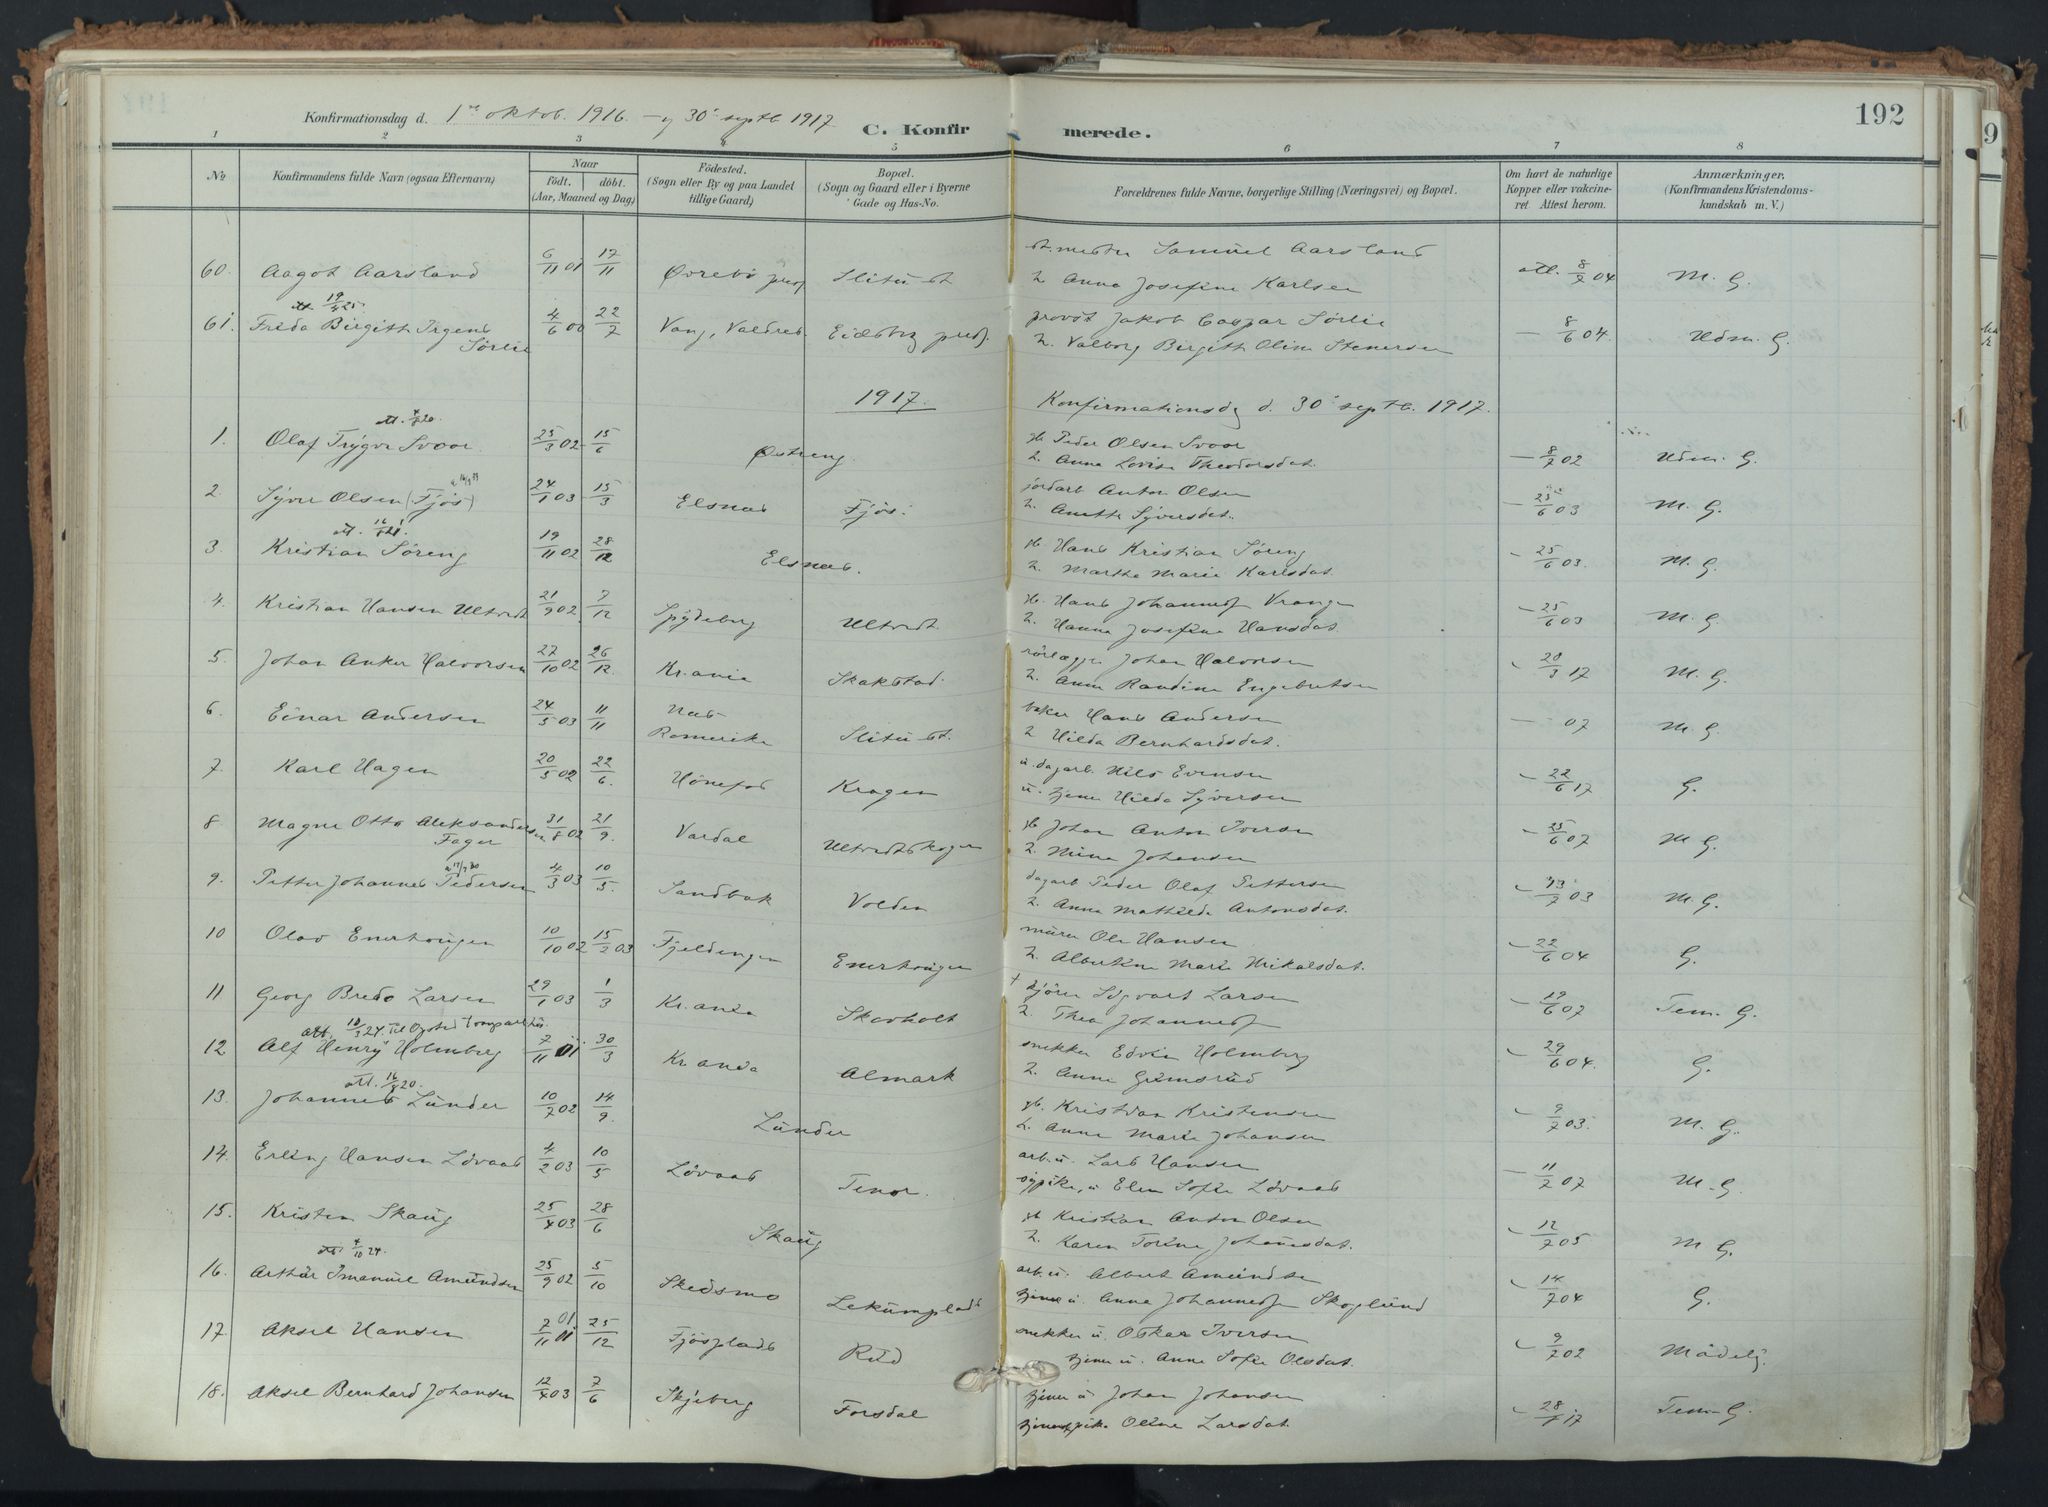 192
Konfirmationsdag d. 1ste oktob. 1916. – og 30' septb. 1917
C. Konfirmerede.
1 2 3 4 5 6 7 8
No.
Konfirmandens fulde Navn (ogsaa Efternavn)
Naar
födt. döbt.
(Aar, Maaned og Dag)
Födested.
(Sogn eller By og paa Landet
tillige Gaard)
Bopæl.
(Sogn og Gaard eller i Byerne
Gade og Hus-No.
Forældrenes fulde Navne, borgerlige Stilling (Næringsvei) og Bopæl.
Om havt de naturlige
Kopper eller vakcine-
ret. Attest herom.
Anmærkninger.
(Konfirmandens Kristendoms-
kundskab m. V.)
60. Aagot Aarsland 6/11 01 17/11 Øvrebø prgj Slitu st st.mester Samuel Aarsland att. 8/7 04 M. G.
2. Anna Josefine Karlsen
att 19/4 25
61. Frida Birgith Irgens 4/6 00 22/7 Vang, Valdres Eidsberg prgj. provst Jakob Caspar Sørlie – 8/6 04. Udm. G.
Sørlie 2. Valborg Birgith Oline Stenersen
1917. Konfirmationsdg d. 30' septb. 1917.
1. Olaf Trygve Svoor 25/3 02 15/6 Østreng gb. Peder Olsen Svoor – 8/7 02 Udm. G.
2. Anna Lovise Theodorsdat.
2. Syver Olsen (Fjøs) 24/1 03 15/3 Elsnes Fjøs. jordarb Anton Olsen – 25/6 03 M. G.
2. Anette Syversdat.
3. Kristian Søreng 19/11 02 28/12 Elsnes. gb. Hans Kristian Søreng – 25/6 03. M. G.
2. Marthe Marie Karlsdat.
4. Kristian Hansen Ultvedt 21/9 02 7/12 Spydeberg Ultvedt. gb. Hans Johannes Vrangen – 25/6 03 M. G.
2. Hanna Josefine Hansdat.
5. Johan Anker Halvorsen 27/10 02 26/12. Kr.ania Skakstad. rørlægge Johan Halvorsen – 20/3 17 M. G.
2. Anna Randine Engebretsen
6. Einar Andersen 24/5 03 11/11 Nes Romerike Slitu st. baker Hans Andersen – 07 M. G.
2 Hilda Bernhardsdat.
7. Karl Hagen 20/5 02 22/6. Hønefos Kragen u. dagarb. Nils Evensen – 22/6 17 G.
u. tjener Hilda Syversen
8 Magne Otto Aleksandersen 31/8 02 21/9. Vardal Ultvedtskogen gb Johan Anton Iversen – 25/6 07 M. G.
Fager 2. Mina Johansen
9. Petter Johannes Pedersen 4/3 03 10/5. Sandbæk Volden dagarb Peder Olaf Pettersen – 13/7 03 M. G.
2. Anna Mathilde Antonsdat.
10 Olav Enerhaugen 10/10 02 15/2 03 Fjeldengen Enerhaugen murer Ole Hansen – 22/6 04 G.
2. Albertine Marie Mikalsdat.
11 Georg Bredo Larsen 29/1 03 1/3 Kr.ania Skovholt † kjører Sigvart Larsen – 19/6 07 Tem. G.
2. Thea Johannesen
12 Alf Henry Holmberg 7/11 01 30/3 Kr.ania Almark snekker Edvin Holmberg – 29/6 04. G.
2. Anna Grimsrud
att. 16/8 20.
13. Johannes Lunder 10/7 02 14/9. Lunder gb. Kristian Kristensen – 9/7 03. M. G.
2. Anne Marie Johansen
14. Erling Hansen Løvaas 4/2 03 10/5 Løvaas Tenor. arb. u. Lars Hansen – 11/7 07 M. G.
sypike, u Elen Sofie Løvaas
15. Kristen Skaug 25/4 03 28/6 Skaug gb Kristian Anton Olsen – 12/7 05 M G.
2. Karen Torine Johansdat.
att 4/10 24.
16. Arthur Imanuel Amundsen 25/9 02 5/10 Skedsmo Lekumplads arb. u. Albert Amundsen – 14/7 04 G.
tjener u. Anna Johannesen Skoglund
17. Aksel Hansen 7/11 01 25/12 Fjøsplads Rud snekker u. Oskar Iversen – 9/7 02 Mådelig.
tjener u. Anna Sofie Olsdat.
18. Aksel Bernhard Johansen 12/4 03 7/6 Skjeberg Forsdal tjener u Johan Johansen – 28/1 17 Tem. G.
tjenestpike Oline Larsdat.